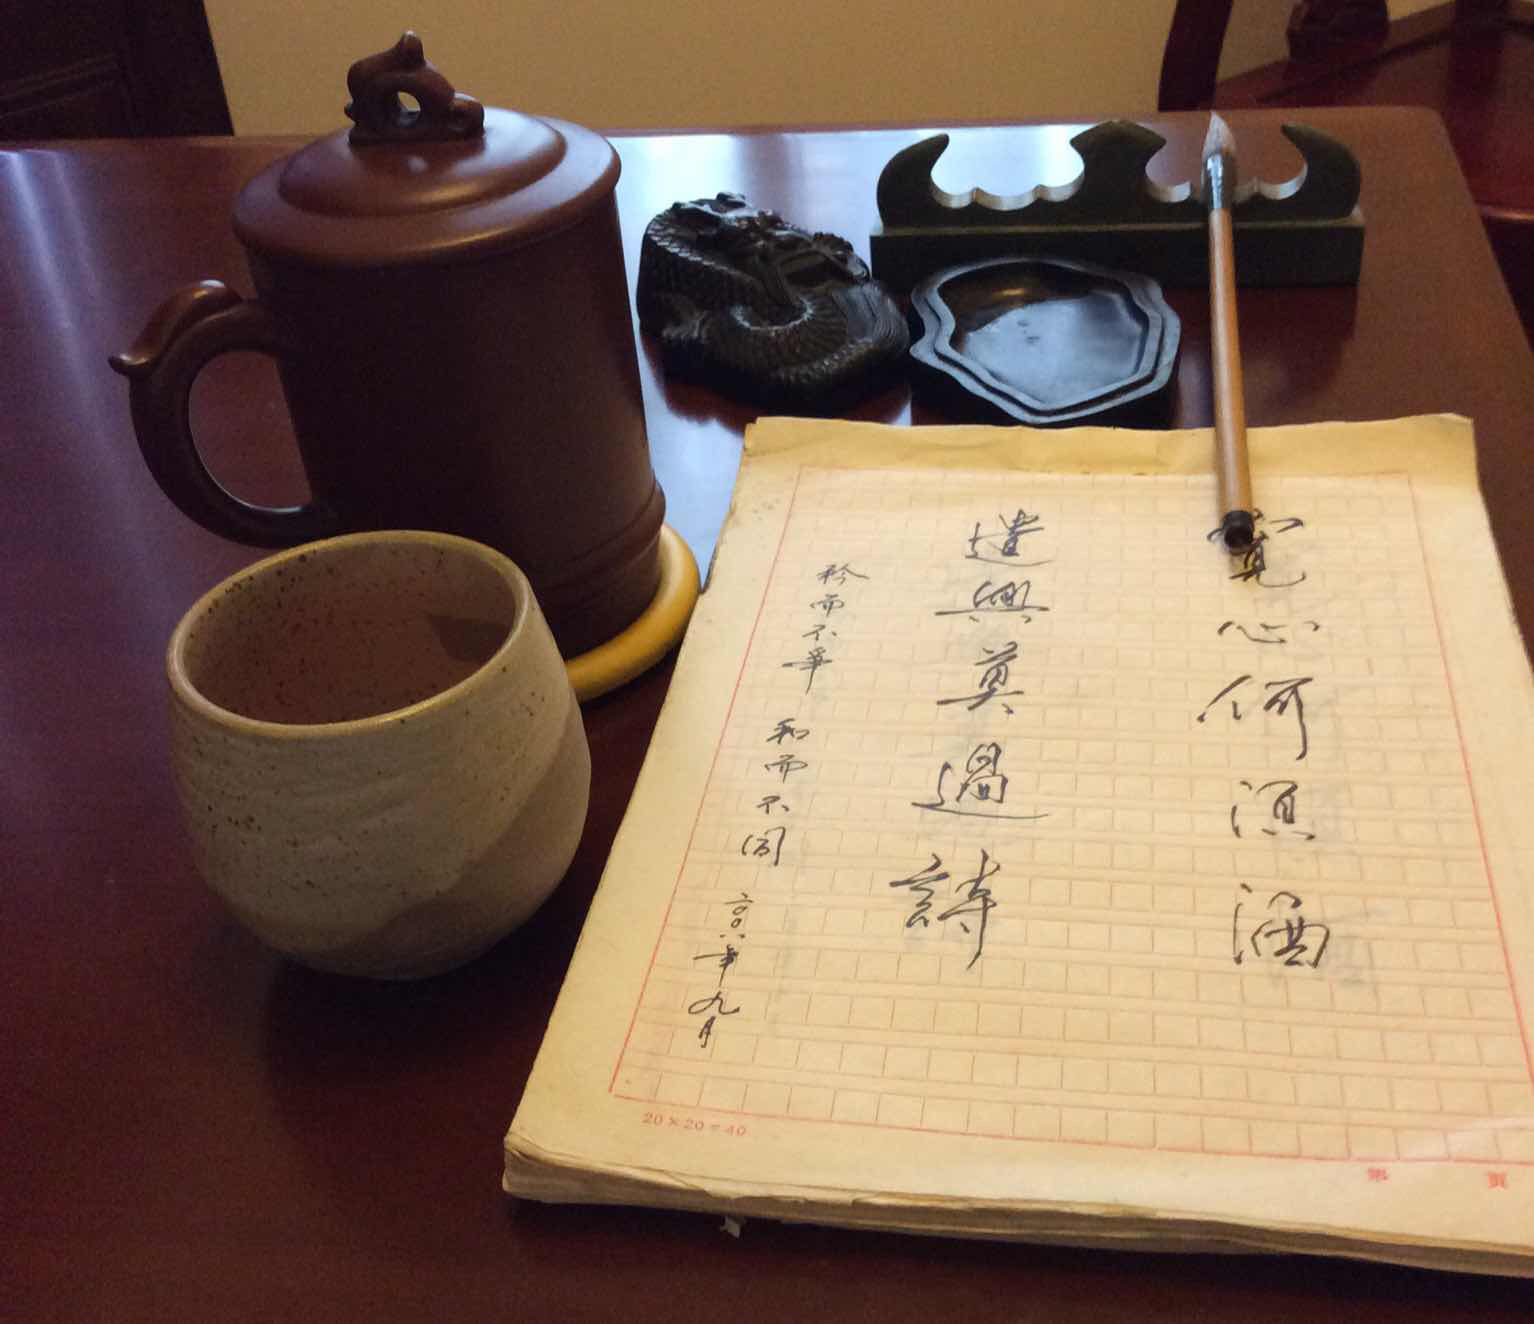 寬心何須酒
遣興莫過詩
矜而不爭 和而不同 二〇〇八年九月
20×20=40
第 頁